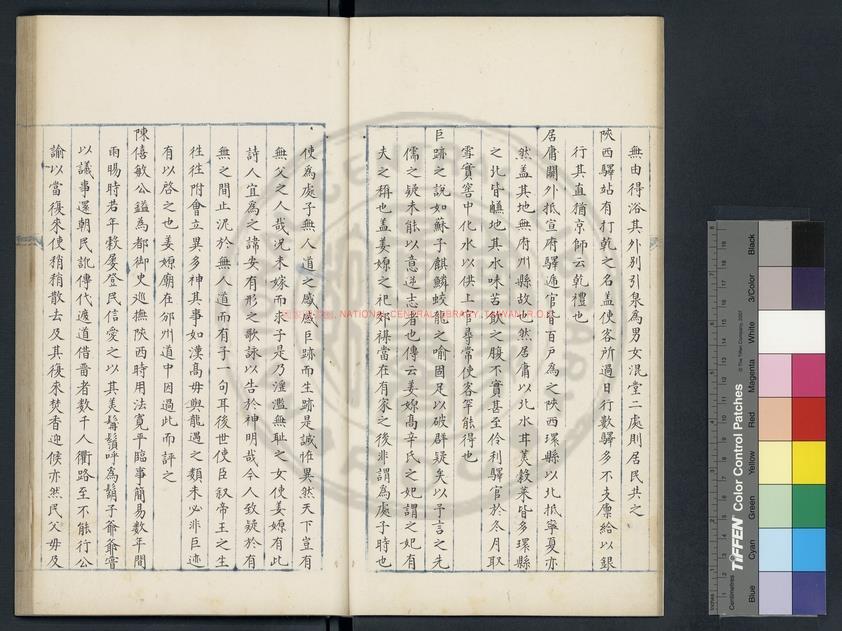 無由得浴其外別引泉為男女混堂二處則居民共之
陝西驛站有打乾之名盖使客所過日行數驛多不支廪給以銀
行其直猶京師云乾禮也
居庸關外抵宣府驛逓官皆百戶為之陝西環縣以北抵寧夏亦
然盖其地無府州縣故也然居庸以北水甘美穀菜皆多環縣
之北皆鹻地其水味苦飲之腹不實甚至伶利驛官於冬月取
雪實窖中化水以供上官尋常使客罕能得也
巨跡之說如蘇子麒麟蛟龍之喻固足以破群疑矣以予言之先
儒之疑未能以意逆志者也傳云姜嫄髙辛氏之妃謂之妃有
夫之稱也盖姜嫄之祀郊禖當在有家之後非謂為處子時也
使為處子無人道之感感巨跡而生跡是誠怪異然天下豈有
無父之人哉况未嫁而求子是乃淫濫無耻之女使姜嫄有此
詩人宜為之諱安有形之歌詠以告於神明哉今人致疑於有
無之間止泥於無人道而有子一句耳後世使臣叙帝王之生
徃徃附會立異多神其事如漢髙毋與龍遇之類未必非巨迹
有以啓之也姜嫄廟在邠州道中因過此而評之
陳僖敏公鎰為都御史巡撫陝西時用法寬平臨事簡易數年間
雨暘時若年榖屡登民信愛之以其美髯鬚呼為鬍子爺爺嘗
以議事還朝民訛傳代遮道借畱者数千人衝路至不能行公
諭以當復來使稍稍散去及其復來焚香迎候亦然民父毋及
NATIONAL CENTRAL LIBRARY, TAIWAN, R.O.C
TIFFEN Color Control Patches
© The Tiffen Company, 2007
Centimetres
Inches
Blue
Cyan
Green
Yellow
Red
Magenta
White
3/Color
Black